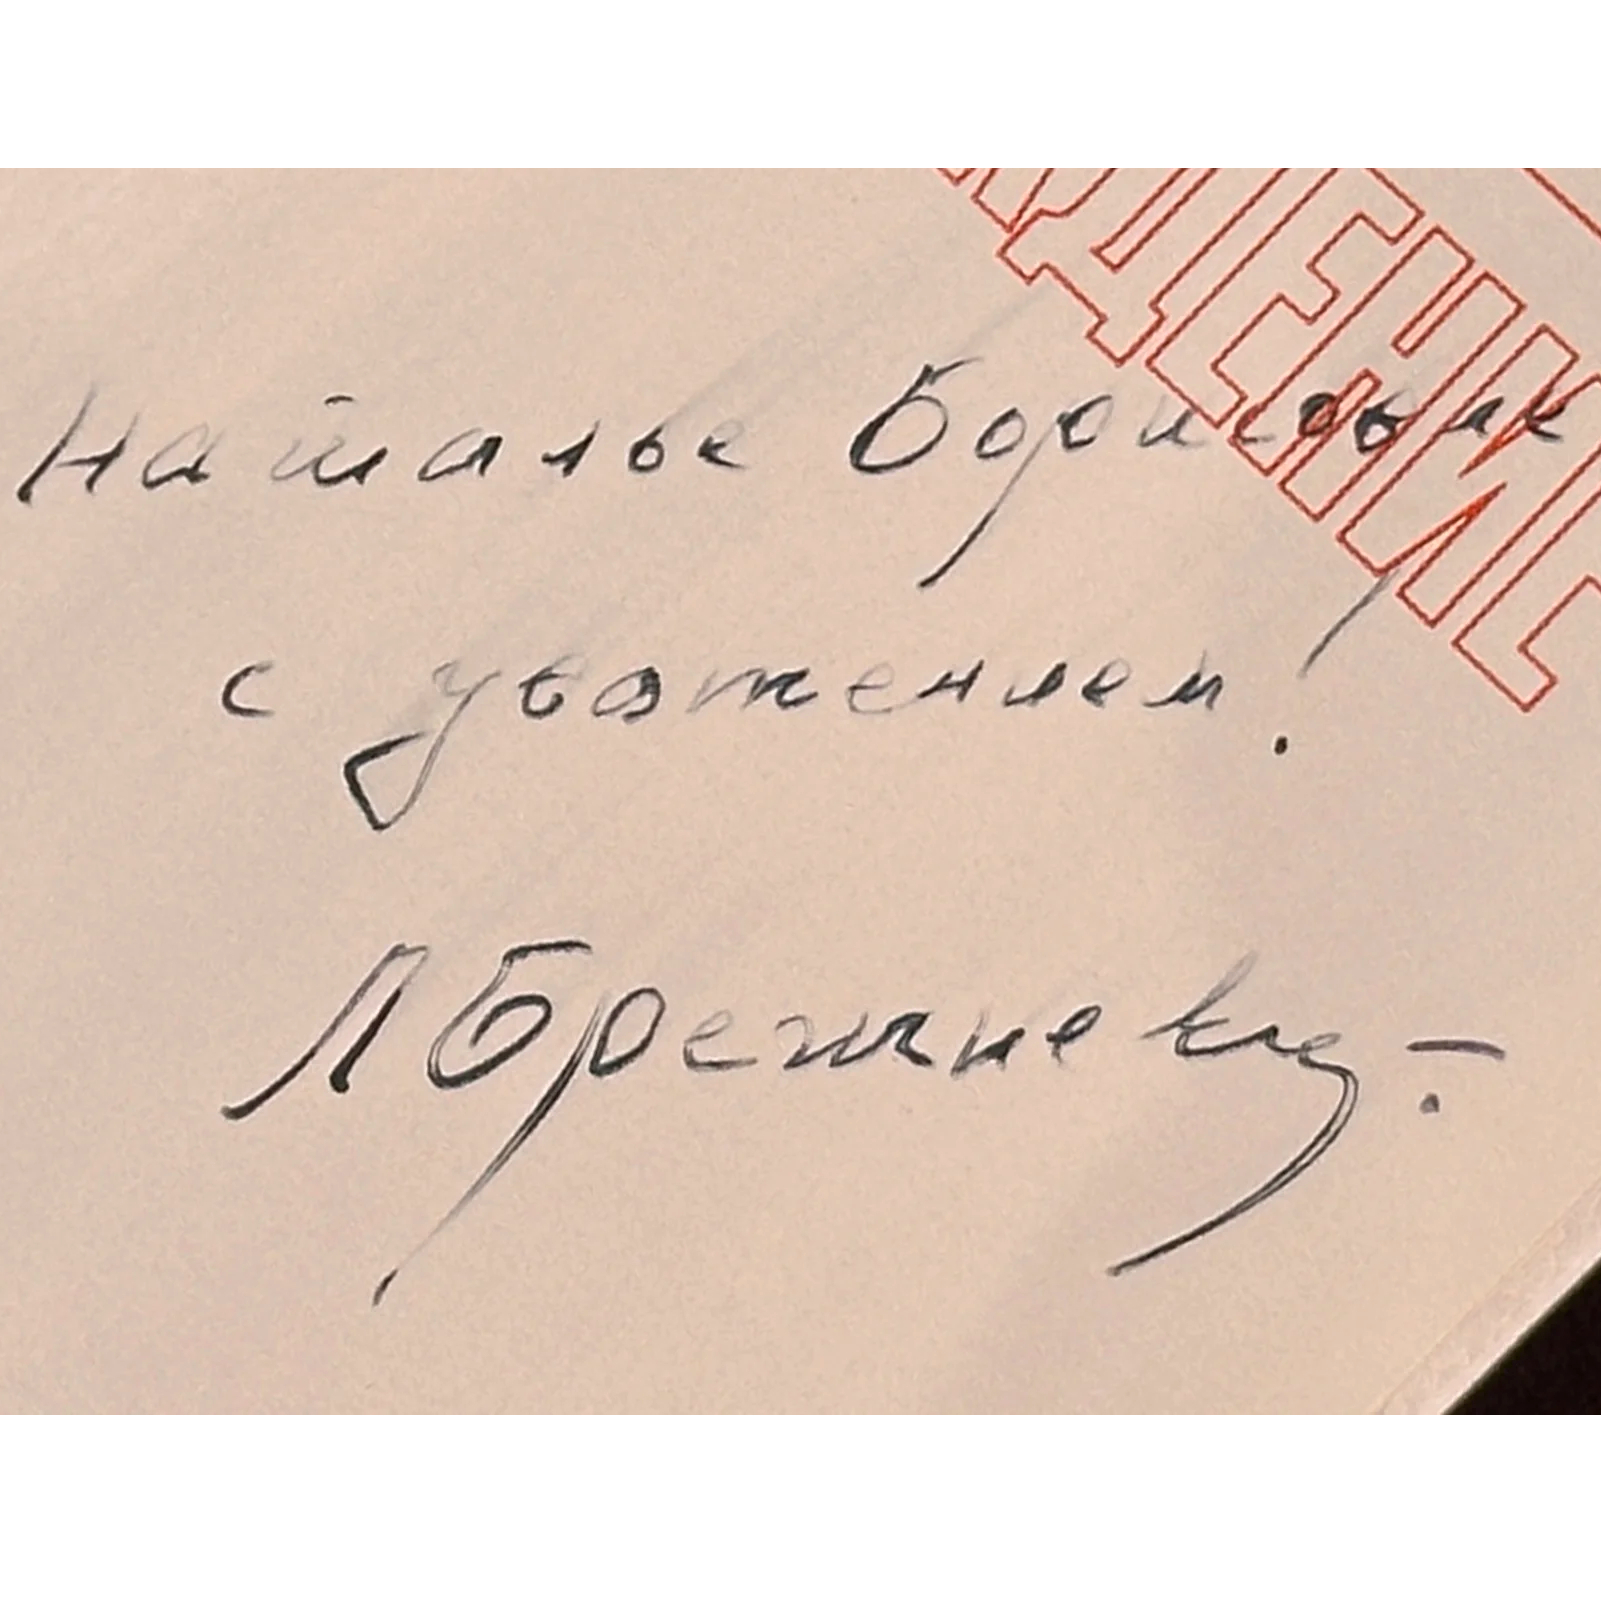 ЖДЕНИЕ
Наталье Борисовне
с уважением!
Л Брежнев